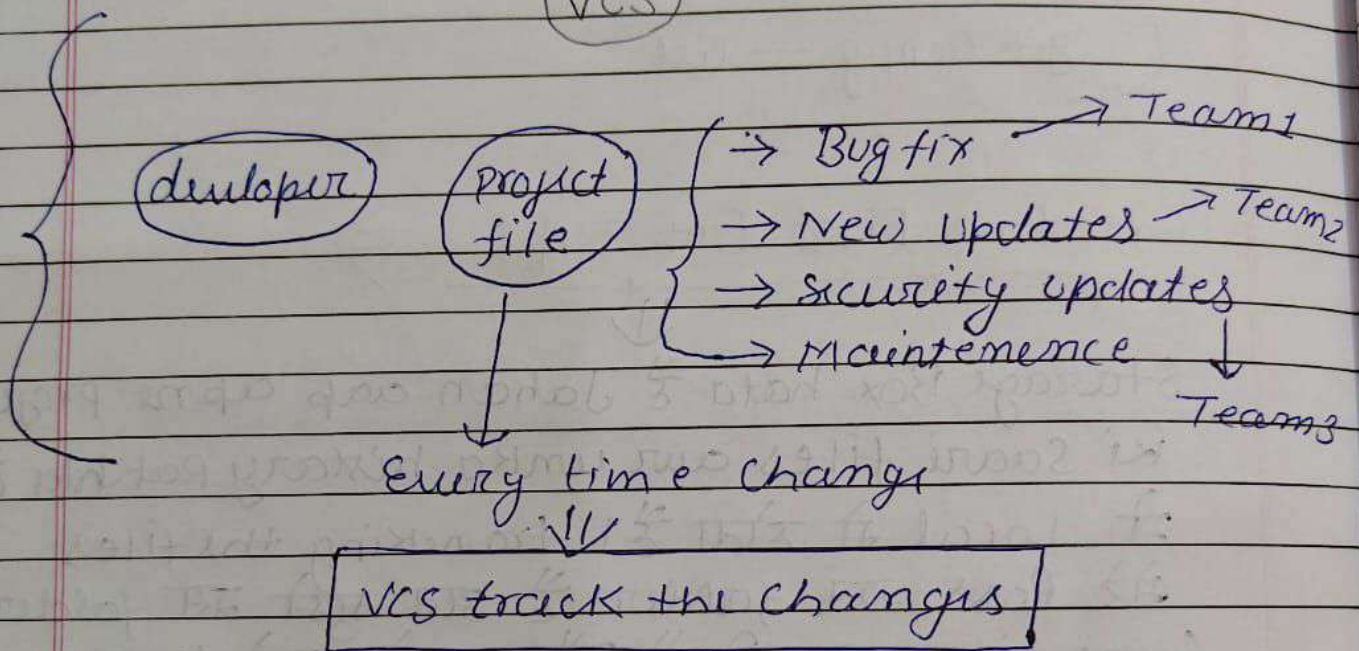 VCS
developer
project
file
→ Bug fix → Team1
→ New Updates → Team2
→ security updates
→ Maintenence
Team3
Every time change
VCS track the changes